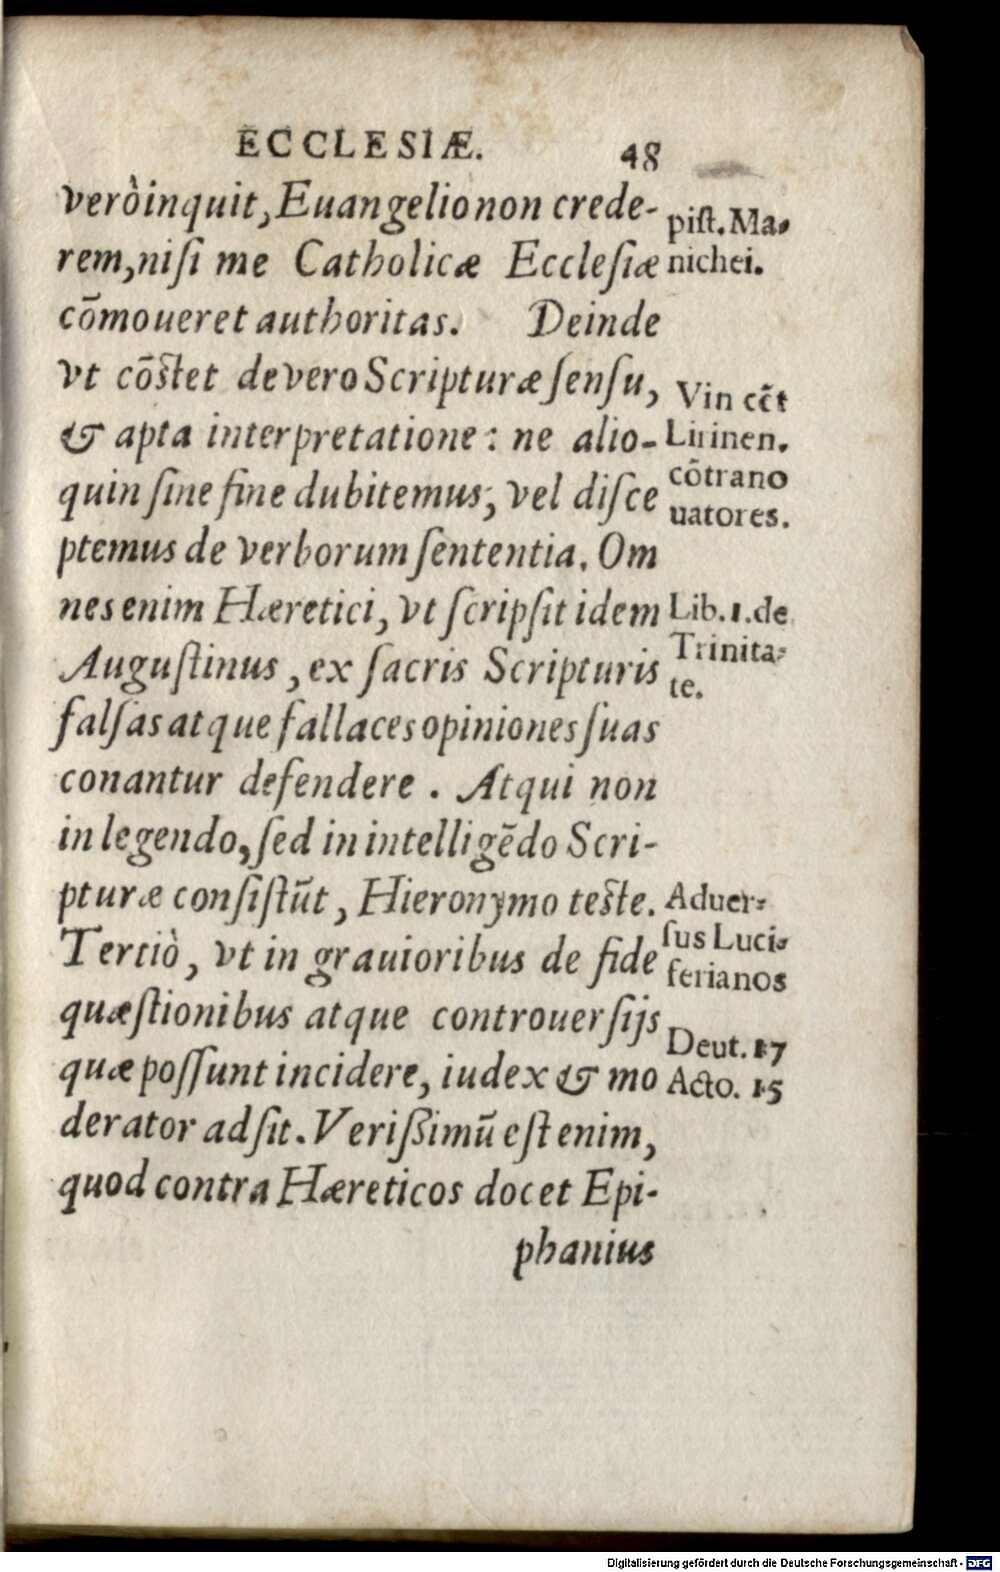 ECCLESIÆ. 48
verò inquit, Euangelio non crede-
rem, nisi me Catholicæ Ecclesiæ
cōmoueret authoritas. Deinde
vt cōstet de vero Scripturæ sensu,
& apta interpretatione: ne alio-
quin sine fine dubitemus, vel disce
ptemus de verborum sententia. Om
nes enim Hæretici, vt scripsit idem
Augustinus, ex sacris Scripturis
falsas atque fallaces opiniones suas
conantur defendere. Atqui non
in legendo, sed in intelligēdo Scri-
pturæ consistūt, Hieronymo teste.
Tertiò, vt in grauioribus de fide
quæstionibus atque controuersijs
quæ possunt incidere, iudex & mo
derator adsit. Verißimū est enim,
quod contra Hæreticos docet Epi-
phanius
pist. Ma-
nichei.
Vin cēt
Lirinen.
cōtra no
uatores.
Lib. 1. de
Trinita-
te.
Aduer-
sus Luci-
ferianos
Deut. 17
Acto. 15
Digitalisierung gefördert durch die Deutsche Forschungsgemeinschaft - DFG